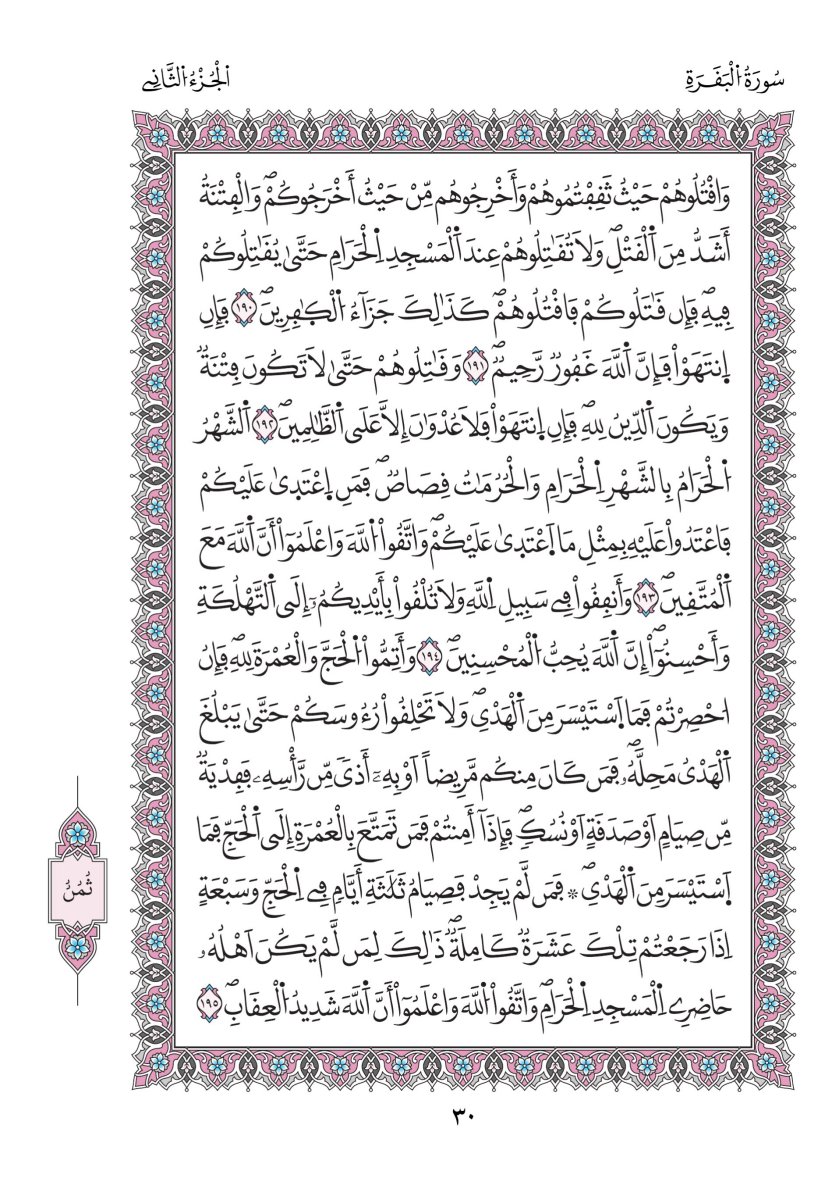 سُورَةُ اُ۬لْبَقَرَةِ
اُ۬لْجُزْءُ اُ۬لثَّانِے
وَاقْتُلُوهُمْ حَيْثُ ثَقِفْتُمُوهُمْ وَأَخْرِجُوهُم مِّنْ حَيْثُ أَخْرَجُوكُمْۖ وَالْفِتْنَةُ
أَشَدُّ مِنَ اَ۬لْقَتْلِۖ وَلَا تُقَٰتِلُوهُمْ عِندَ اَ۬لْمَسْجِدِ اِ۬لْحَرَامِ حَتَّىٰ يُقَٰتِلُوكُمْ
فِيهِۖ فَإِن قَٰتَلُوكُمْ فَاقْتُلُوهُمْۖ كَذَٰلِكَ جَزَآءُ اُ۬لْكٰ۪فِرِينَۖ ١٩٠ فَإِنِ
اِ۪نتَهَوْاْ فَإِنَّ اَ۬للَّهَ غَفُورٞ رَّحِيمٞۖ ١٩١ وَقَٰتِلُوهُمْ حَتَّىٰ لَا تَكُونَ فِتْنَةٞ
وَيَكُونَ اَ۬لدِّينُ لِلهِۖ فَإِنِ اِ۪نتَهَوْاْ فَلَا عُدْوَٰنَ إِلَّا عَلَى اَ۬لظَّٰلِمِينَۖ ١٩٢ اَ۬لشَّهْرُ
اُ۬لْحَرَامُ بِالشَّهْرِ اِ۬لْحَرَامِ وَالْحُرُمَٰتُ قِصَاصٞۖ فَمَنِ اِ۪عْتَدَىٰ عَلَيْكُمْ
فَاعْتَدُواْ عَلَيْهِ بِمِثْلِ مَا اَ۪عْتَدَىٰ عَلَيْكُمْۖ وَاتَّقُواْ اُ۬للَّهَ وَاعْلَمُوٓاْ أَنَّ اَ۬للَّهَ مَعَ
اَ۬لْمُتَّقِينَۖ ١٩٣ وَأَنفِقُواْ فِے سَبِيلِ اِ۬للَّهِ وَلَا تُلْقُواْ بِأَيْدِيكُمُۥٓ إِلَى اَ۬لتَّهْلُكَةِ
وَأَحْسِنُوٓاْ إِنَّ اَ۬للَّهَ يُحِبُّ اُ۬لْمُحْسِنِينَۖ ١٩٤ وَأَتِمُّواْ اُ۬لْحَجَّ وَالْعُمْرَةَ لِلهِۖ فَإِنُ
ا۟حْصِرْتُمْ فَمَا اَ۪سْتَيْسَرَ مِنَ اَ۬لْهَدْيِۖ وَلَا تَحْلِقُواْ رُءُوسَكُمْ حَتَّىٰ يَبْلُغَ
اَ۬لْهَدْيُ مَحِلَّهُۥۖ فَمَن كَانَ مِنكُم مَّرِيضاً اَوْ بِهِۦٓ أَذيٗ مِّن رَّأْسِهِۦ فَفِدْيَةٞ
مِّن صِيَامٍ اَوْ صَدَقَةٍ اَوْ نُسُكٖۖ فَإِذَآ أَمِنتُمْ فَمَن تَمَتَّعَ بِالْعُمْرَةِ إِلَى اَ۬لْحَجِّ فَمَا
اَ۪سْتَيْسَرَ مِنَ اَ۬لْهَدْيِۖ ۞ فَمَن لَّمْ يَجِدْ فَصِيَامُ ثَلَٰثَةِ أَيَّامٖ فِے اِ۬لْحَجِّ وَسَبْعَةٍ
اِذَا رَجَعْتُمْ تِلْكَ عَشَرَةٞ كَامِلَةٞۖ ذَٰلِكَ لِمَن لَّمْ يَكُنَ اَهْلُهُۥ
حَاضِرِے اِ۬لْمَسْجِدِ اِ۬لْحَرَامِۖ وَاتَّقُواْ اُ۬للَّهَ وَاعْلَمُوٓاْ أَنَّ اَ۬للَّهَ شَدِيدُ اُ۬لْعِقَابِۖ ١٩٥
ثُمُنُ
٣٠